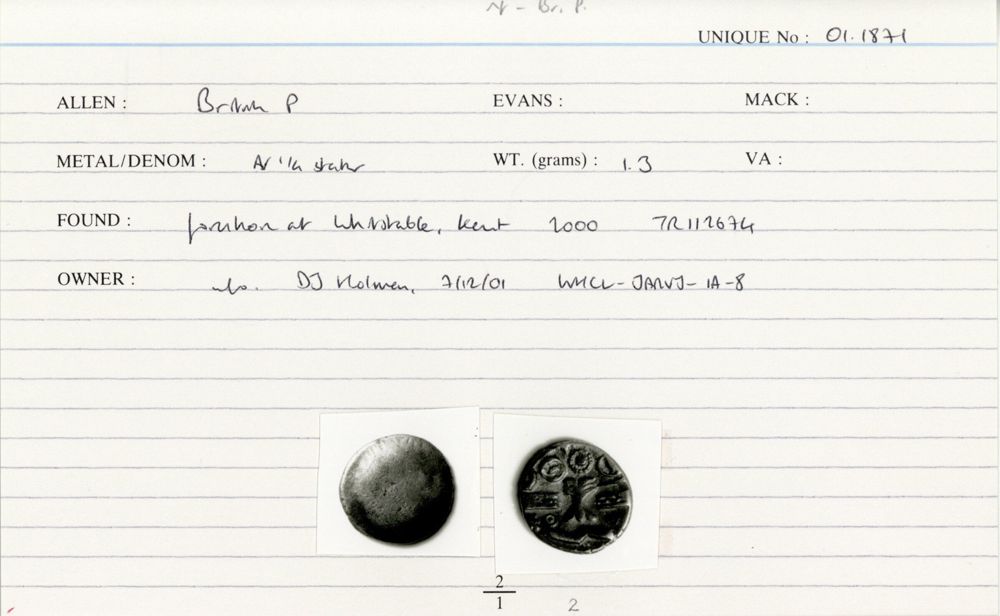 Br. P.
UNIQUE No : 01.1871
ALLEN : British P EVANS : MACK :
METAL/DENOM : AV 1/4 stater WT. (grams) : 1.3 VA :
FOUND : foreshore at Whitstable, Kent 2000 TR112674
OWNER : info. DJ Holman, 7/12/01 WMCL-JARVJ-IA-8
2
1
2